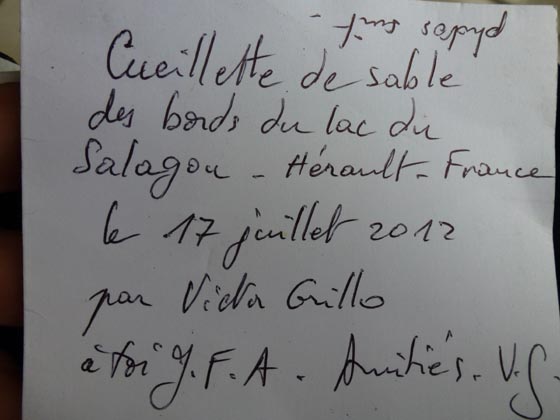 Cueillette de sable
des bords du lac du
Salagou - Hérault - France
le 17 juillet 2012
par Victor Grillo
à toi J.F.A - Amitiés - V.G.